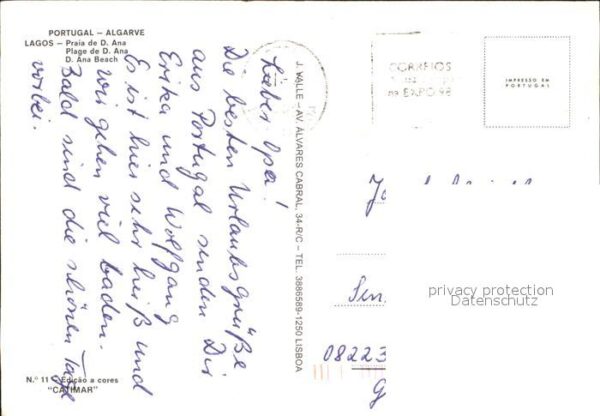 PORTUGAL – ALGARVE
LAGOS – Praia de D. Ana
Plage de D. Ana
D. Ana Beach
Lieber Opa!
Die besten Urlaubsgrüße
aus Portugal senden Dir
Erika und Wolfgang
Es ist hier sehr heiß und
wir gehen viel baden.
Bald sind die schönen Tage
vorbei.
N.º 11 Edição a cores
"CATIMAR"
J. VALLE – AV. ÁLVARES CABRAL, 34-R/C – TEL. 3886569-1250 LISBOA
CORREIOS
na EXPO 98
IMPRESSO EM
PORTUGAL
privacy protection
Datenschutz
08223